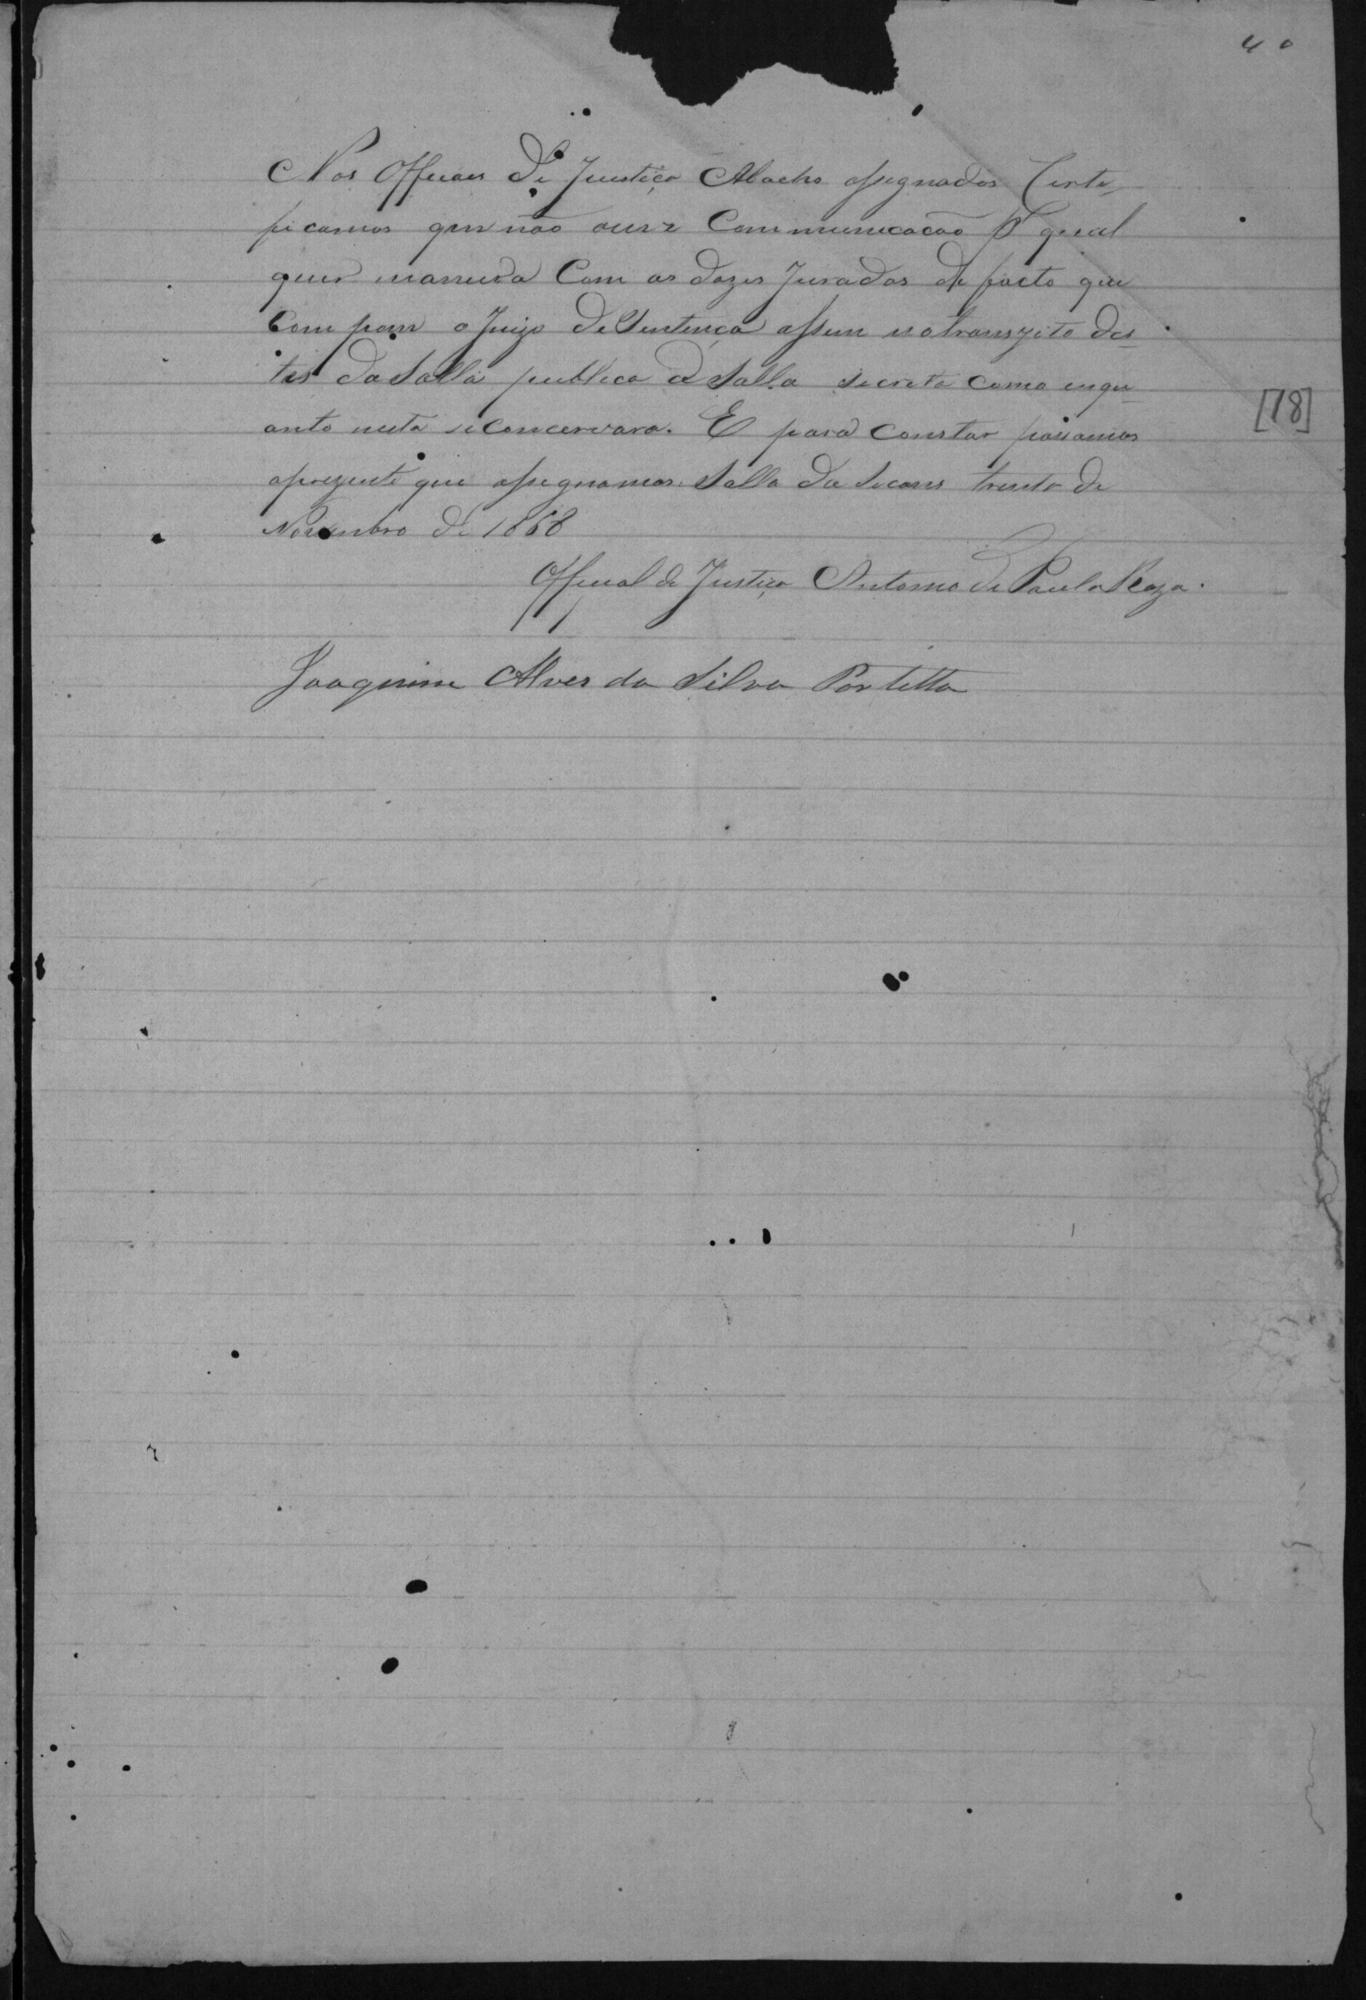 40
Nos Officiaes de Justiça Abacho assegnados Certe
ficamos que não ouve Communicacão pr qual
quer maneira Com os dozes Jurados de facto que
Com pom o Juizo de Sentença assim no tranzito des-
tes da Salla publica a Salla Secreta como enqu-
anto nesta se concervara. E para constar passamos
aprezente que assegnamos. Salla da Secoens trenta de
Novembro de 1868
Official de Justiça Antonio de Paula Roza.
Joaquim Alves da Silva Portilla
[18]